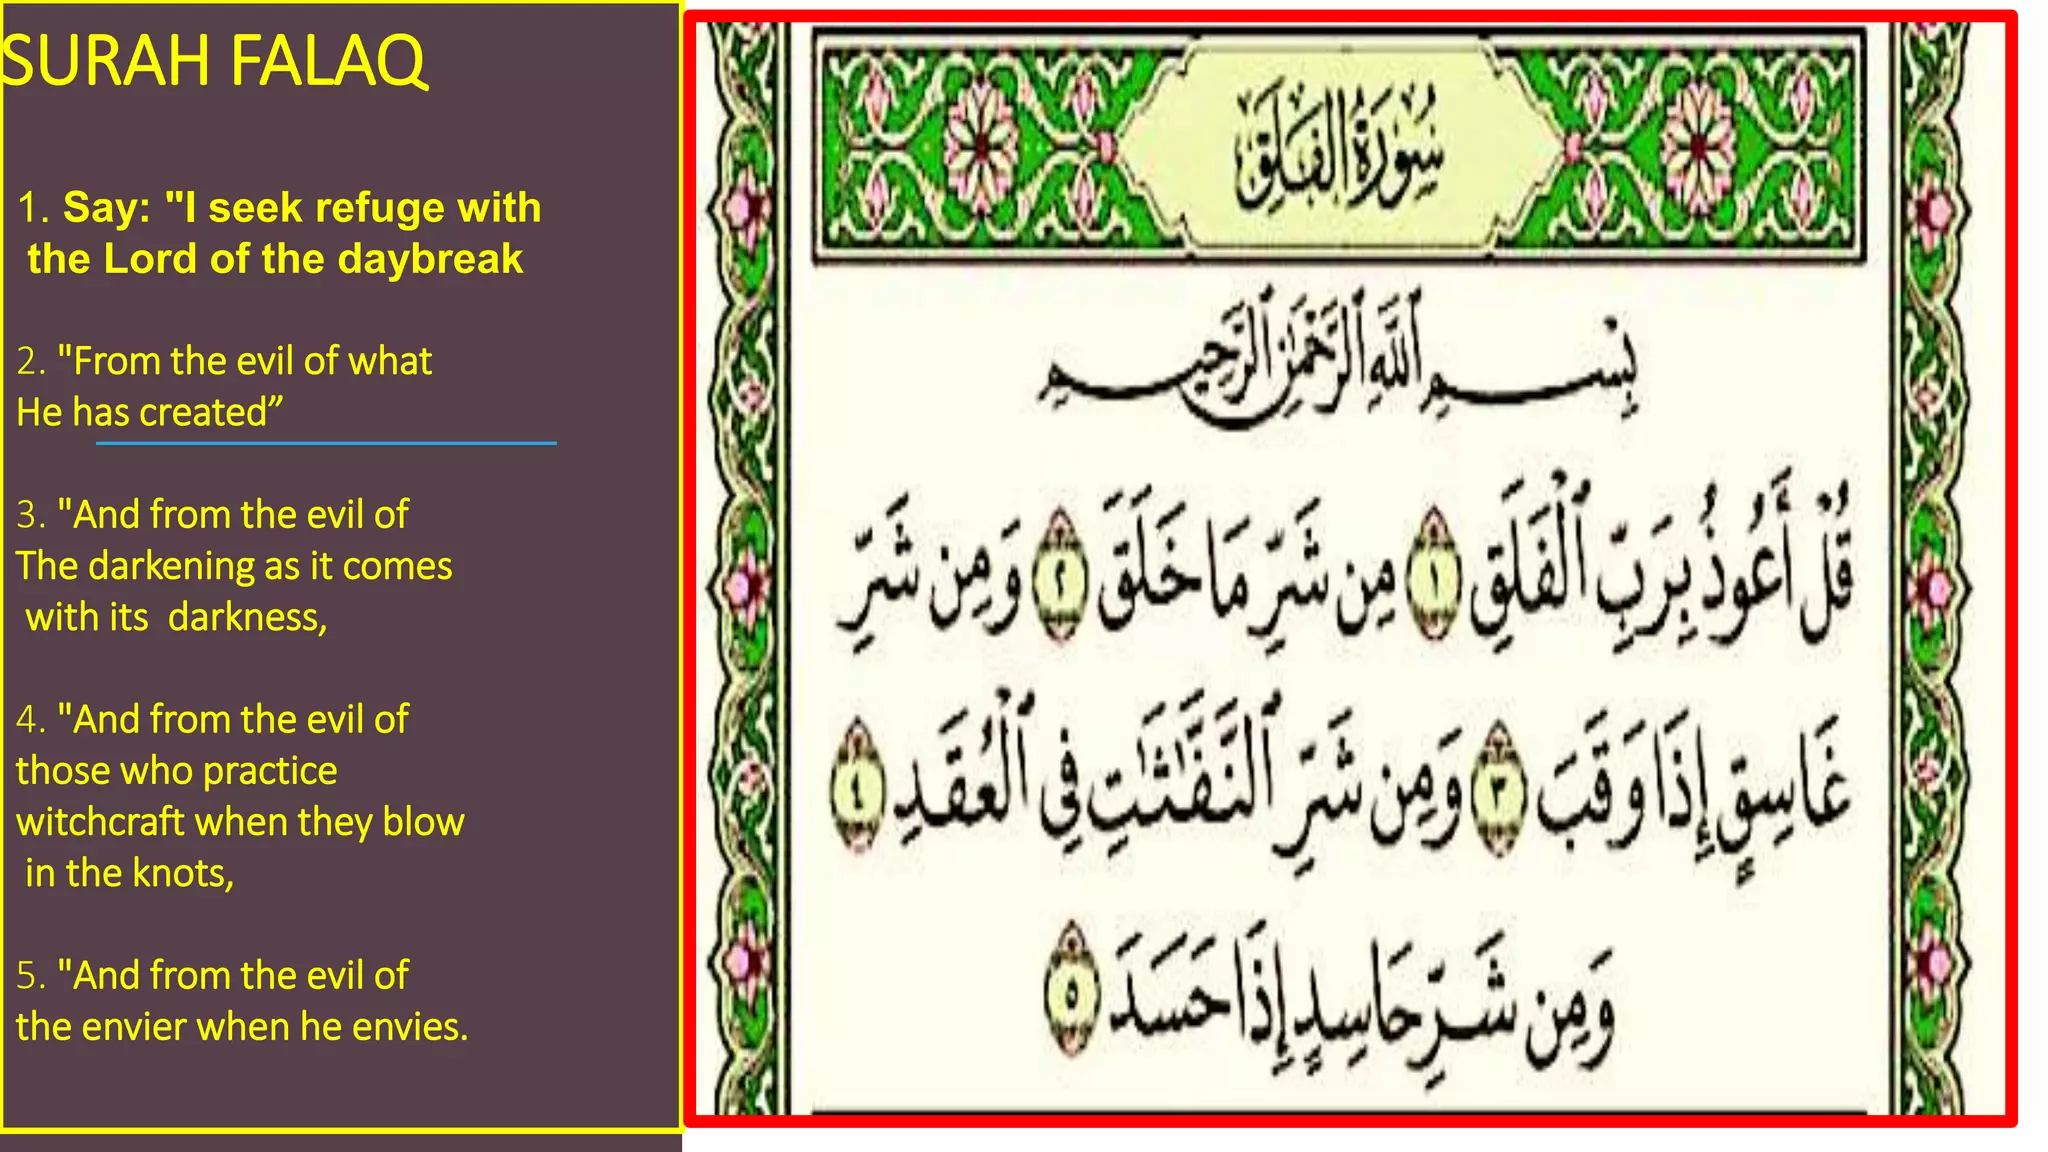 SURAH FALAQ
1. Say: "I seek refuge with
the Lord of the daybreak
2. "From the evil of what
He has created”
3. "And from the evil of
The darkening as it comes
with its darkness,
4. "And from the evil of
those who practice
witchcraft when they blow
in the knots,
5. "And from the evil of
the envier when he envies.
سُورَةُ الفَلَقِ
بِسْمِ ٱللَّهِ ٱلرَّحْمَٰنِ ٱلرَّحِيمِ
قُلْ أَعُوذُ بِرَبِّ ٱلْفَلَقِ ١ مِن شَرِّ مَا خَلَقَ ٢ وَمِن شَرِّ
غَاسِقٍ إِذَا وَقَبَ ٣ وَمِن شَرِّ ٱلنَّفَّٰثَٰتِ فِى ٱلْعُقَدِ ٤
وَمِن شَرِّ حَاسِدٍ إِذَا حَسَدَ ٥